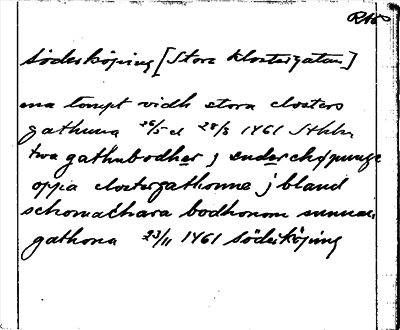 RAp
Söderköping [Stora Klostergatan]
ena tompt vidh stora closters
gathuna 26/5 el 28/8 1461 Sthlm
twa gathubodher j suderchøpunge
oppa clostergathonne j bland
schomachara bodhonom sunnan
gathona 23/11 1461 Söderköping